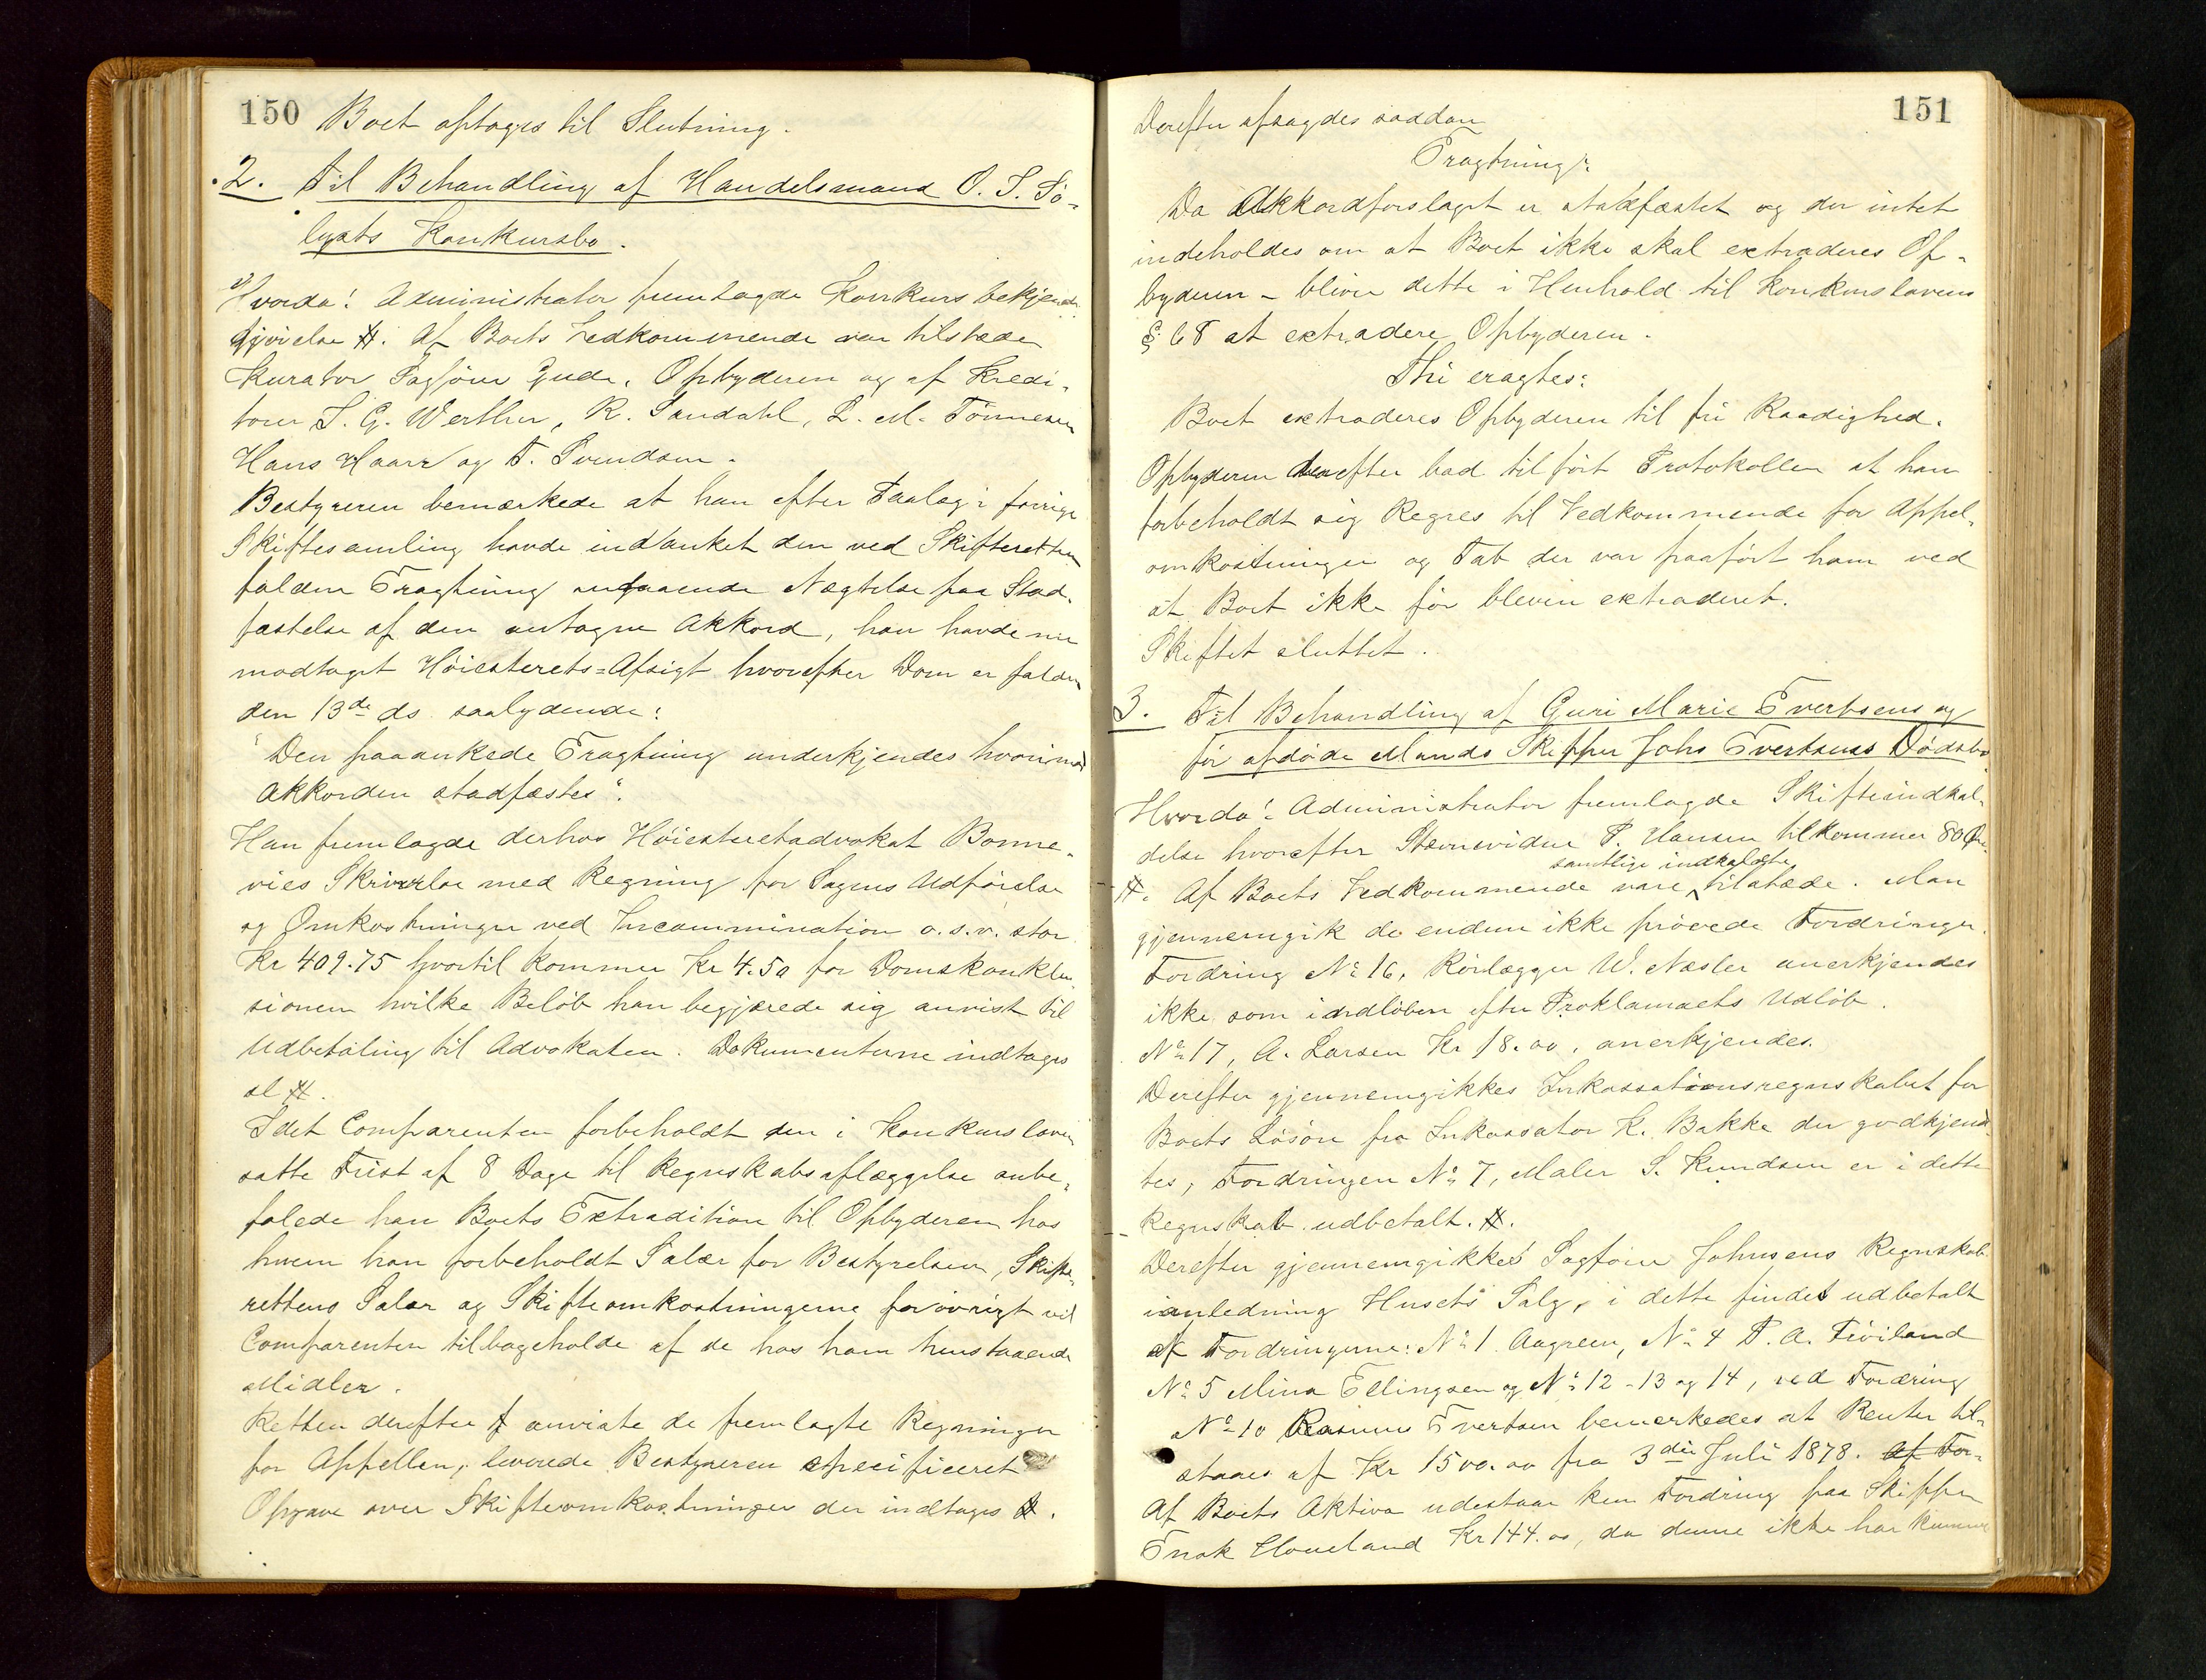 150
Boet optages til Slutning.
2. Til Behandling af Handelsmand O. S. Sø-
lysts Konkursbo.
Hvorda! Administrator fremlagde Konkurs bekjendt
gjørelse #. Af Boets Vedkommende var tilstæde
Kurator Sagfører Gude, Opbyderen og af Kredi-
torer S. G. Werther, R. Sandahl, L. M. Tønnesen
Hans Haarr og T. Svendsen.
Bestyreren bemærkede at han efter Paalæg i forrige
Skiftesamling havde indanket den ved Skifteretten
faldne Eragtning angaaende Nægtelse paa Stad-
fæstelse af den antagne Akkord, han havde nu
modtaget Høiesterets=Afsigt hvorefter Dom er falden
den 13de ds saalydende:
"Den paaankede Eragtning underkjendes hvorimod
Akkorden stadfæstes".
Han fremlagde derhos Høiesteretsadvokat Bonne-
vies Skrivelse med Regning for Sagens Udførelse
og Omkostninger ved Incammination o.s.v. stor
Kr 409.75 hvortil kommer Kr 4.50 for Domskonklu-
sionen hvilke Beløb han begjærede sig anvist til
Udbetaling til Advokaten. Dokumenterne indtages
sl #.
Idet Comparenten forbeholdt den i Konkursloven
satte Frist af 8 Dage til Regnskabsaflæggelse anbe-
falede han Boets Extradition til Opbyderen hos
hvem han forbeholdt Salær for Bestyrelsen, Skifte-
rettens Salær og Skifteomkostningerne forøvrigt vil
Comparenten tilbageholde af de hos ham henstaaende
Midler.
Retten derefter anviste de fremlagte Regninger
for Appellen, leverede Bestyreren specificeret
Opgave over Skifteomkostninger der indtages #.
151
Derefter afsagdes saadan
Eragtning:
Da Akkordforslaget er stadfæstet og der intet
indeholdes om at Boet ikke skal extraderes Op-
byderen - bliver dette i Henhold til Konkurslovens
§ 68 at extradere Opbyderen.
Thi eragtes:
Boet extraderes Opbyderen til fri Raadighed.
Opbyderen derefter bad tilført Protokollen at han
forbeholdt sig Regres til Vedkommende for Appel-
omkostninger og Tab der var paaført ham ved
at Boet ikke før bleven extraderet.
Skiftet sluttet.
3. Til Behandling af Guri Marie Evertsens og
før afdøde Mands Skipper Johs Evertsens Dødsbo
Hvorda! Administrator fremlagde Skifteindkal-
delse hvorefter Stævnevidne P. Hansen tilkommer 80 Øre
#. Af Boets Vedkommende vare samtlige indkaldte tilstæde. Man
gjennemgik de endnu ikke prøvede Fordringer.
Fordring No 16, Rørlægger W. Næsler anerkjendes
ikke som indløben efter Proklamaets Udløb.
No 17, A. Larsen Kr 18.00. anerkjendes.
Derefter gjennemgikkes Inkassationsregnskabet for
Boets Løsøre fra Inkassator K. Bakke der godkjend-
tes, Fordringen No 7, Maler S. Knudsen er i dette
Regnskab udbetalt. #.
Derefter gjennemgikkes Sagfører Johnsens Regnskab
ianledning Husets Salg, i dette findes udbetalt
af Fordringerne: No 1 Aagreen, No 4 P. A.
No 5 Mina Ellingsen og No 12 - 13 og 14, ved Fordring
No 10 Rasmus Evertsen bemærkedes at Renter til-
staaes af Kr 1500.00 fra 3die Juli 1878. Af For-
Af Boets Aktiva udestaar kun Fordring paa Skipper
Enok Haveland Kr 144.00, da denne ikke har kunne